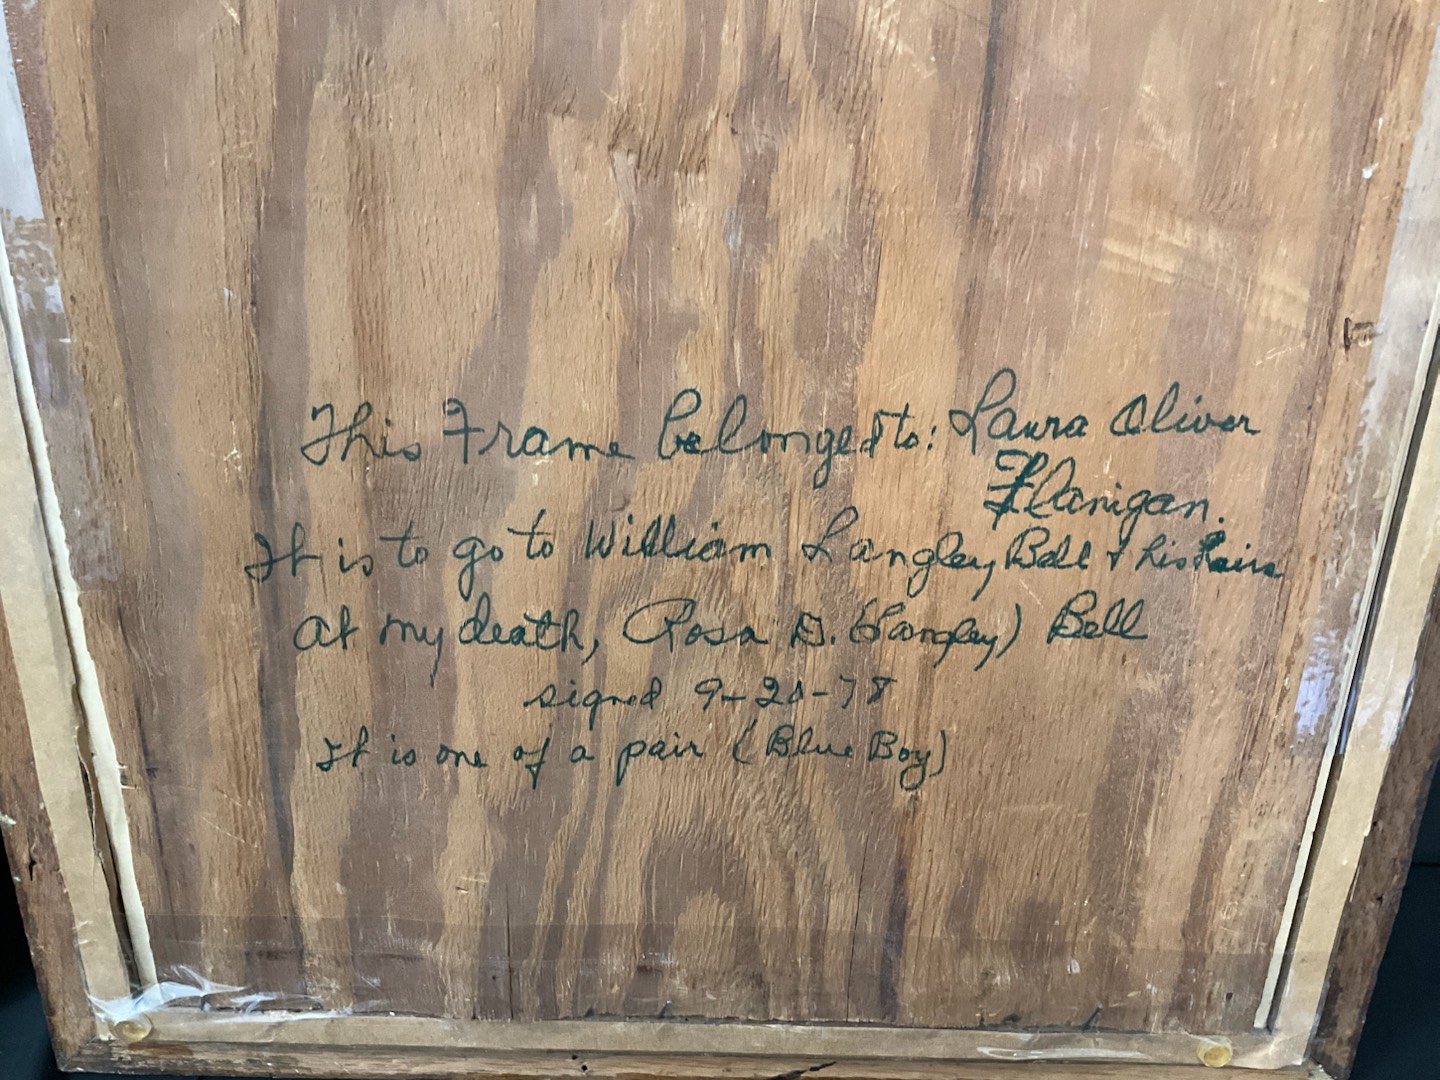 This Frame belonged to: Laura Oliver
Flanigan.
It is to go to William Langley Bell & his heirs
at my death, Rosa D. (Langley) Bell
signed 9-20-78
It is one of a pair (Blue Boy)